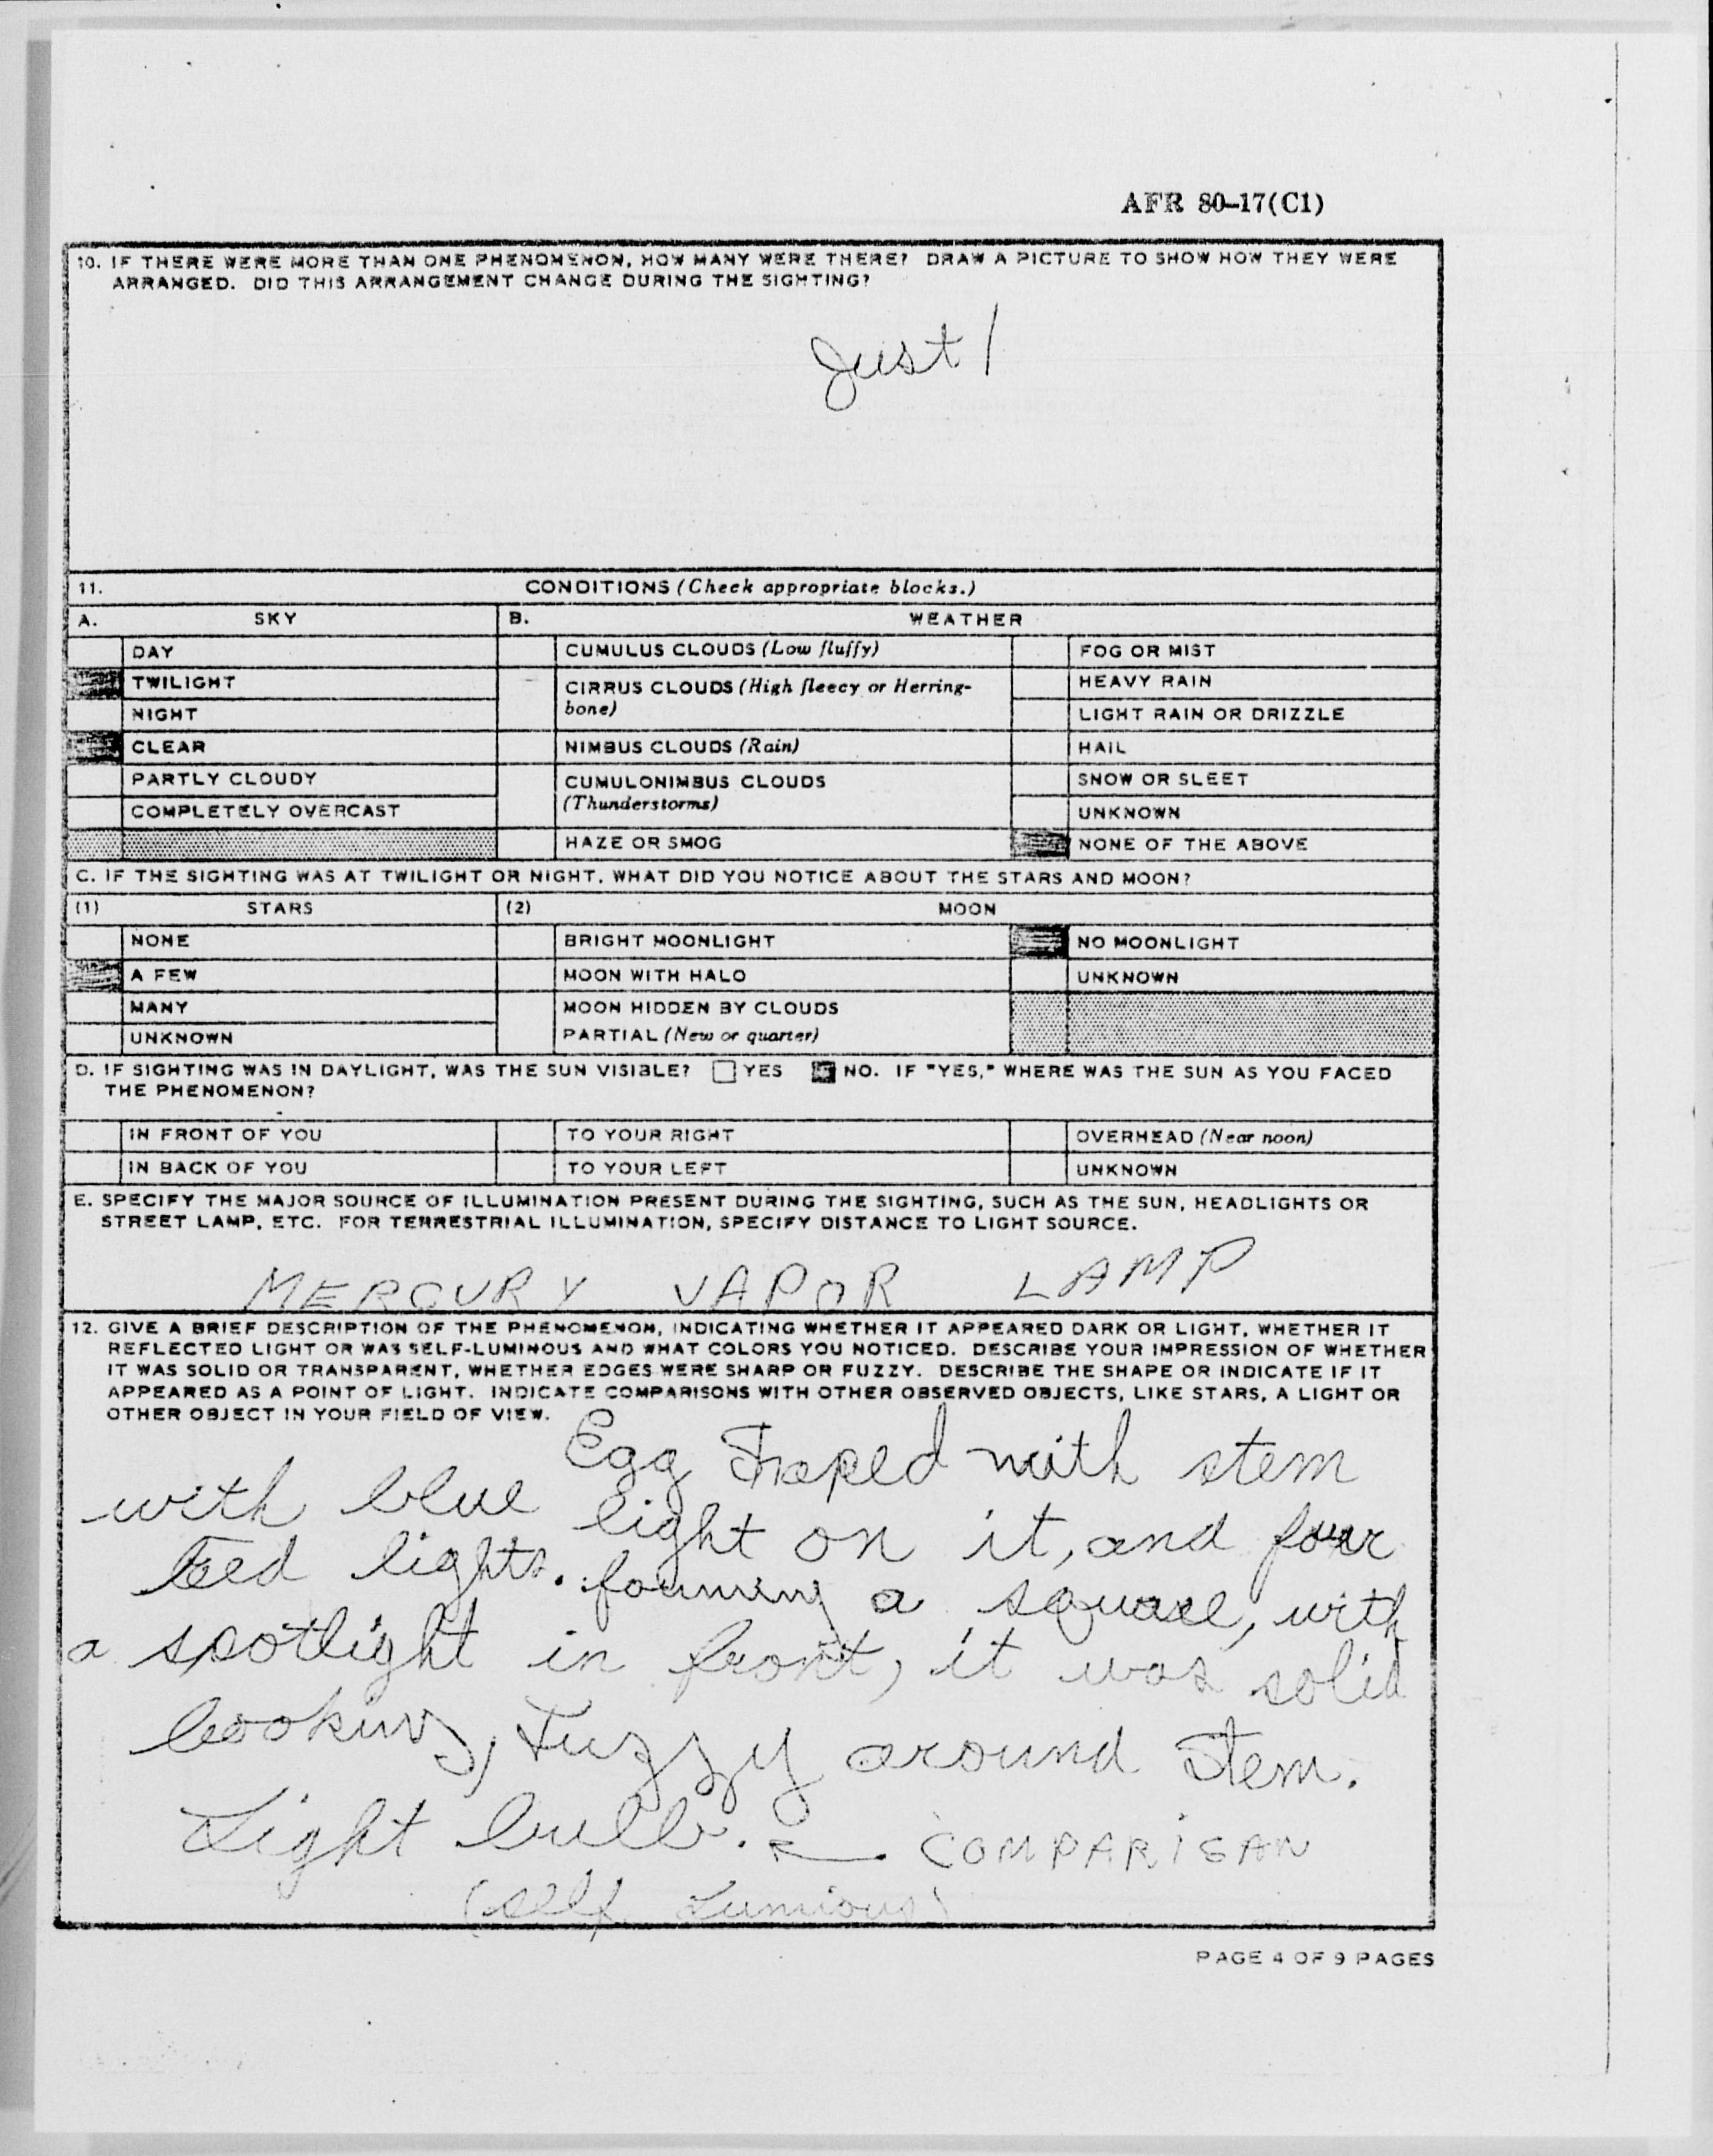 AFR 80-17(C1)
10. IF THERE WERE MORE THAN ONE PHENOMENON, HOW MANY WERE THERE? DRAW A PICTURE TO SHOW HOW THEY WERE
ARRANGED. DID THIS ARRANGEMENT CHANGE DURING THE SIGHTING?
Just 1
11. CONDITIONS (Check appropriate blocks.)
A. SKY B. WEATHER
DAY CUMULUS CLOUDS (Low fluffy) FOG OR MIST
TWILIGHT CIRRUS CLOUDS (High fleecy or Herring- HEAVY RAIN
NIGHT bone) LIGHT RAIN OR DRIZZLE
CLEAR NIMBUS CLOUDS (Rain) HAIL
PARTLY CLOUDY CUMULONIMBUS CLOUDS SNOW OR SLEET
COMPLETELY OVERCAST (Thunderstorms) UNKNOWN
HAZE OR SMOG NONE OF THE ABOVE
C. IF THE SIGHTING WAS AT TWILIGHT OR NIGHT, WHAT DID YOU NOTICE ABOUT THE STARS AND MOON?
(1) STARS (2) MOON
NONE BRIGHT MOONLIGHT NO MOONLIGHT
A FEW MOON WITH HALO UNKNOWN
MANY MOON HIDDEN BY CLOUDS
UNKNOWN PARTIAL (New or quarter)
D. IF SIGHTING WAS IN DAYLIGHT, WAS THE SUN VISIBLE? YES NO. IF "YES," WHERE WAS THE SUN AS YOU FACED
THE PHENOMENON?
IN FRONT OF YOU TO YOUR RIGHT OVERHEAD (Near noon)
IN BACK OF YOU TO YOUR LEFT UNKNOWN
E. SPECIFY THE MAJOR SOURCE OF ILLUMINATION PRESENT DURING THE SIGHTING, SUCH AS THE SUN, HEADLIGHTS OR
STREET LAMP, ETC. FOR TERRESTRIAL ILLUMINATION, SPECIFY DISTANCE TO LIGHT SOURCE.
MERCURY VAPOR LAMP
12. GIVE A BRIEF DESCRIPTION OF THE PHENOMENON, INDICATING WHETHER IT APPEARED DARK OR LIGHT, WHETHER IT
REFLECTED LIGHT OR WAS SELF-LUMINOUS AND WHAT COLORS YOU NOTICED. DESCRIBE YOUR IMPRESSION OF WHETHER
IT WAS SOLID OR TRANSPARENT, WHETHER EDGES WERE SHARP OR FUZZY. DESCRIBE THE SHAPE OR INDICATE IF IT
APPEARED AS A POINT OF LIGHT. INDICATE COMPARISONS WITH OTHER OBSERVED OBJECTS, LIKE STARS, A LIGHT OR
OTHER OBJECT IN YOUR FIELD OF VIEW.
Egg Shaped with stem
with blue light on it, and four
red lights. forming a square, with
a spotlight in front, it was solid
looking, Fuzzy around stem.
Light bulb. ← COMPARISAN
(self Lumious)
PAGE 4 OF 9 PAGES